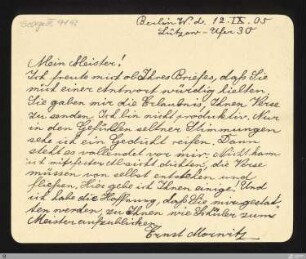 Berlin W. d. 12. IX. 05
Lützow-Ufer 30
Mein Meister!
Ich freute mich ob Ihres Briefes, daß Sie
mich einer Antwort würdig hielten.
Sie gaben mir die Erlaubnis, Ihnen Verse
zu senden. Ich bin nicht produktiv. Nur
in den Gefühlen seltner Stimmungen
sehe ich ein Gedicht reifen. Dann
steht es vollendet vor mir. Nicht kann
ich mit fester dichten, die Verse
müssen von selbst entstehen und
fließen. Hier gebe ich Ihnen einige! Und
ich habe die Hoffnung, daß Sie mir gestat-
ten werden, zu Ihnen wie Schüler zum
Meister aufzublicken.
Ernst Morwitz